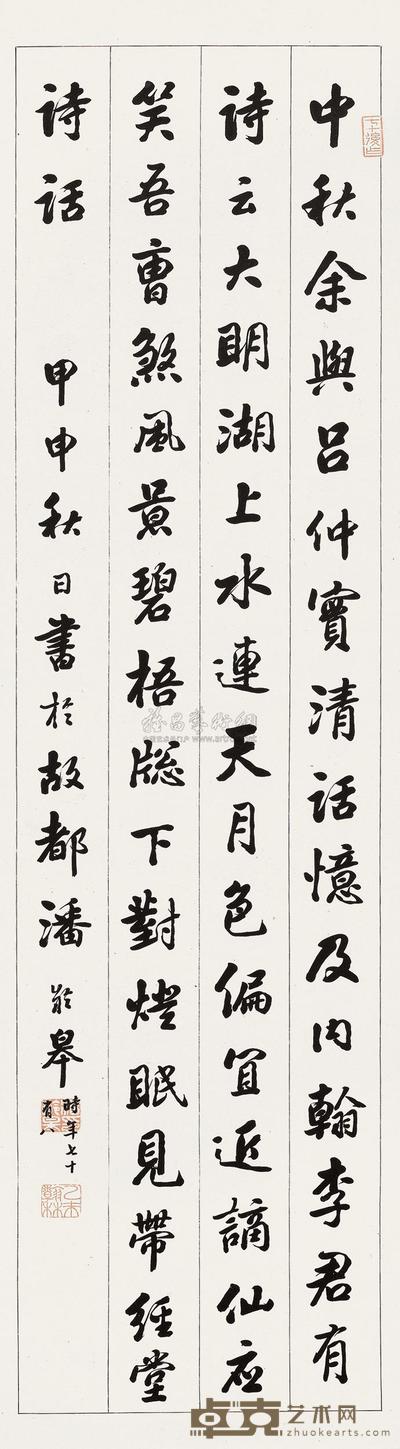 中秋余與呂仲實清話憶及内翰李君有
詩云大明湖上水連天月色偏宜近謫仙應
笑吾曹煞風景碧梧牕下對燈眠見帶經堂
詩話 甲申秋日書於故都潘齡皋時年七十
有八
卓克艺术网
zhuokearts.com